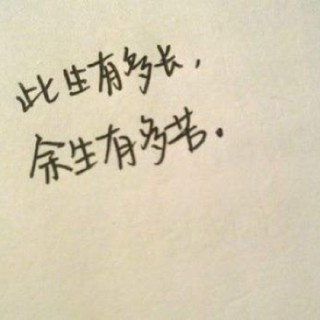 此生有多长，
余生有多苦。